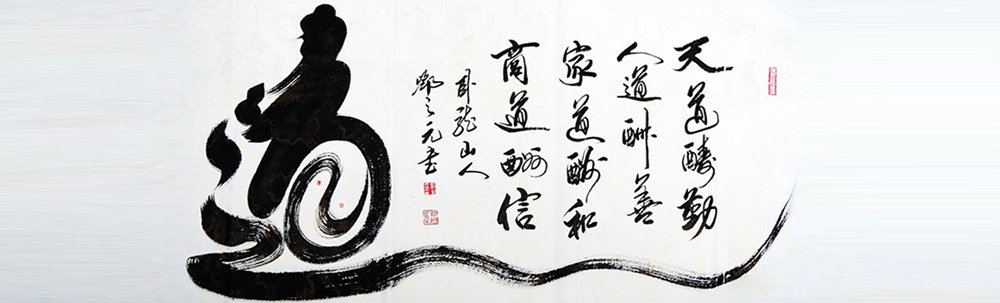 天道酬勤
人道酬善
家道酬和
商道酬信
卧龍山人
鄭之元書
道